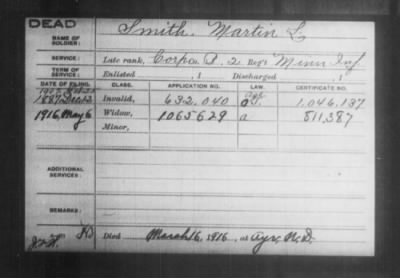 DEAD
NAME OF SOLDIER: Smith, Martin L
SERVICE: Late rank, Corp. Co. B. 2 Reg't Minn Inf
TERM OF SERVICE: Enlisted , 1 Discharged , 1
DATE OF FILING. CLASS. APPLICATION NO. LAW. CERTIFICATE NO.
1887 Dec 12 Invalid, 632.040 1.046.137
1916, May 6 Widow, 1065629 a 811,387
Minor,
ADDITIONAL SERVICES:
REMARKS:
Died March 16, 1916, at Ayr, N.D.